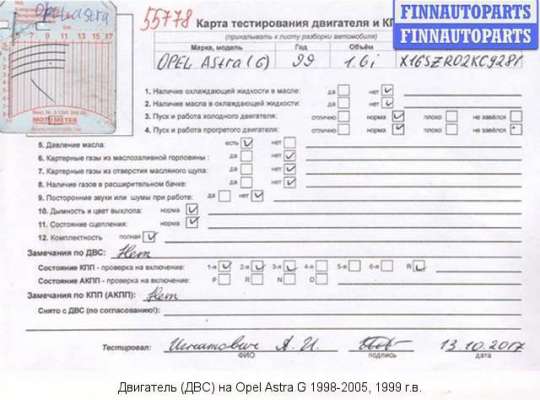 Opel Astra
55778
Карта тестирования двигателя и КП
(прикалывать к листу разборки автомобиля)
FINNAUTOPARTS
FINNAUTOPARTS
Марка, модель Год Объём
OPEL Astra (G) 99 1.6i X16SZR02KC9281
1. Наличие охлаждающей жидкости в масле: да нет
2. Наличие масла в охлаждающей жидкости: да нет
3. Пуск и работа холодного двигателя: отлично норма плохо не завёлся
4. Пуск и работа прогретого двигателя: отлично норма плохо не завёлся
5. Давление масла: есть нет
6. Картерные газы из маслозаливной горловины: да нет
7. Картерные газы из отверстия масляного щупа: да нет
8. Наличие газов в расширительном бачке: да нет
9. Посторонние звуки или шумы при работе: да нет
10. Дымность и цвет выхлопа: норма
11. Состояние сцепления: норма
12. Комплектность полная
Замечания по ДВС: Нет
Состояние КПП - проверка на включение: 1-я 2-я 3-я 4-я 5-я 6-я R
Состояние АКПП - проверка на включение: P R N D
Замечания по КПП (АКПП): Нет
Снято с ДВС (по согласованию!):
Тестировал: Игнатович А. И. 13.10.2017
ФИО подпись дата
MOTOMETER
Двигатель (ДВС) на Opel Astra G 1998-2005, 1999 г.в.